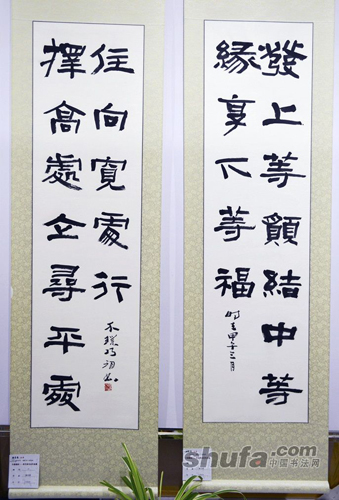 發上等願結中等
緣享下等福
時在甲午三月
擇高處立尋平處
住向寬處行
shufa.com
中国书法网